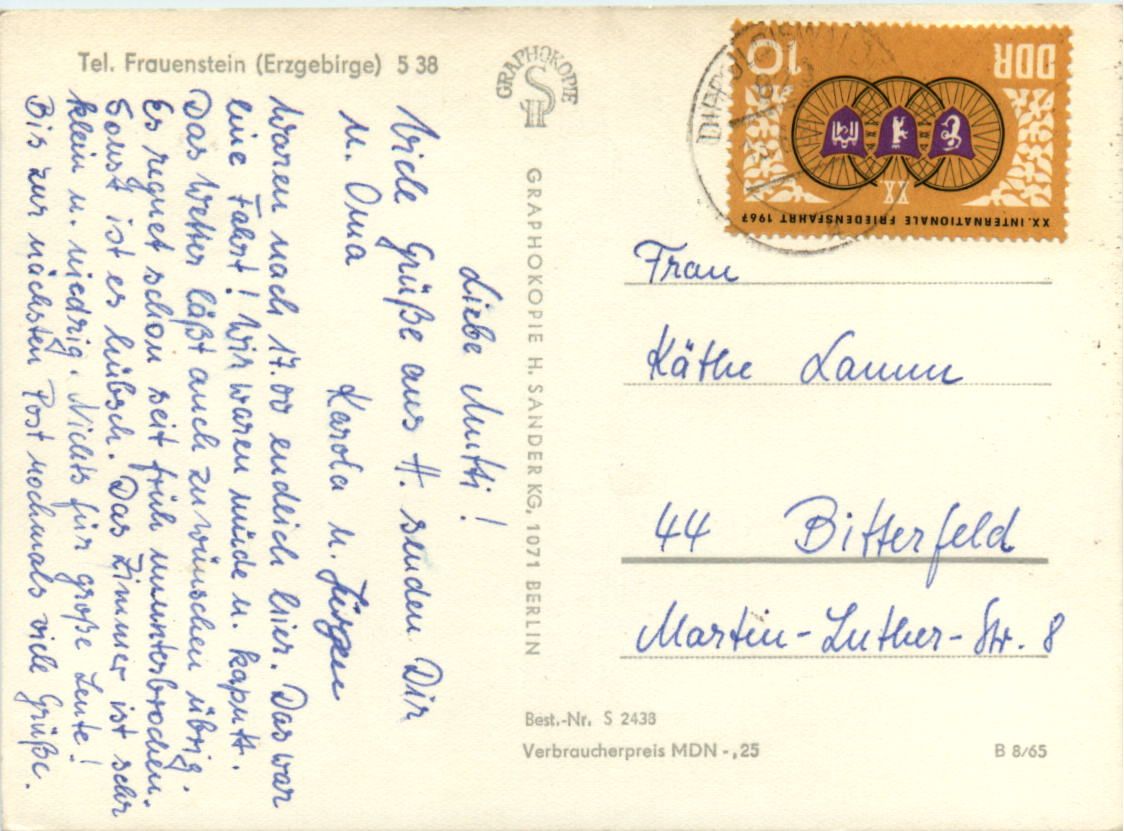 Tel. Frauenstein (Erzgebirge) 5 38
GRAPHOKOPIE
H S
GRAPHOKOPIE H. SANDER KG, 1071 BERLIN
Liebe Mutti!
Viele Grüße aus H. senden Dir
u. Oma
Karola u. Jürgen
Waren nach 17.00 endlich hier. Das war
eine Fahrt! Wir waren müde u. kaputt.
Das Wetter läßt auch zu wünschen übrig.
Es regnet schon seit früh ununterbrochen.
Sonst ist es hübsch. Das Zimmer ist sehr
klein u. niedrig. Nichts für große Leute!
Bis zur nächsten Post nochmals viele Grüße.
DDR
10
XX
XX. INTERNATIONALE FRIEDENSFAHRT 1967
Frau
Käthe Lamm
44 Bitterfeld
Martin-Luther-Str. 8
Best.-Nr. S 2438
Verbraucherpreis MDN -,25
B 8/65